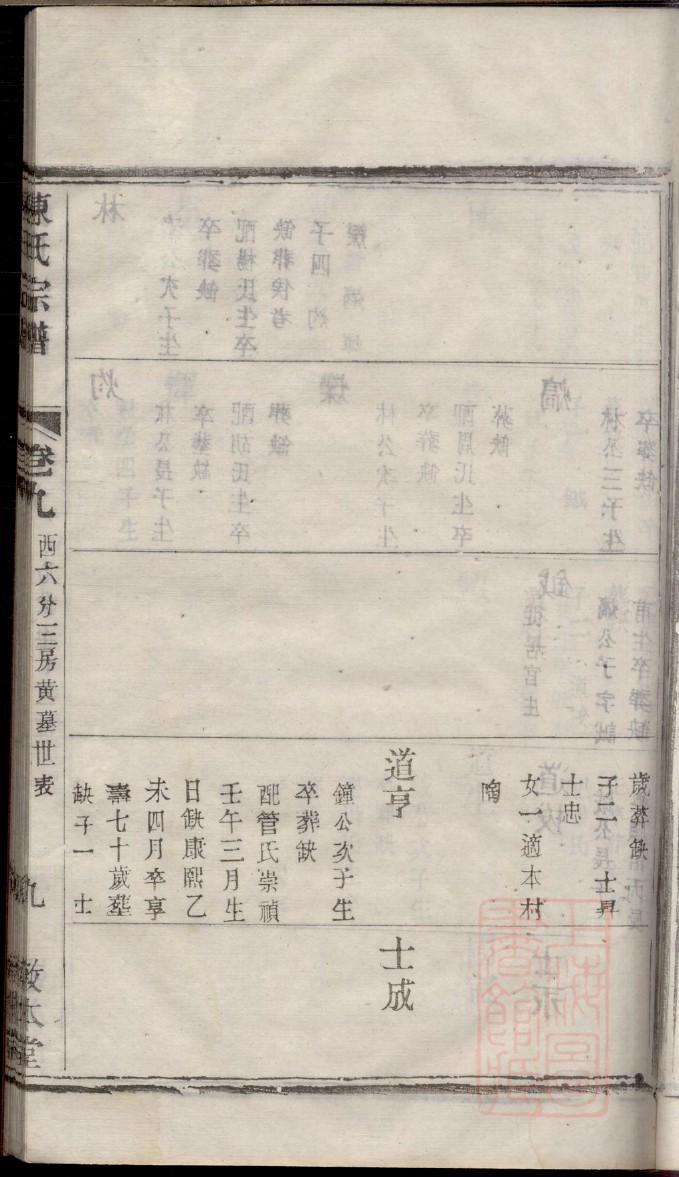 歲葬缺
子二 士昇
士忠
女一適本村
陶
道亨
鐘公次子生
卒葬缺
配管氏崇禎
壬午三月生
日缺康熙乙
未四月卒享
壽七十歲葬
缺子一 士
士成
陳氏宗譜
卷九
西六分三房黄墓世表
九
敦本堂